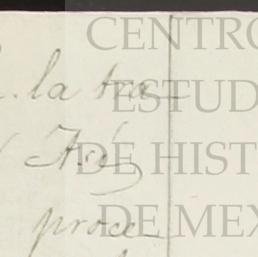 CENTRO
la tra
ESTUD
DE HIST
proce
DE MEX